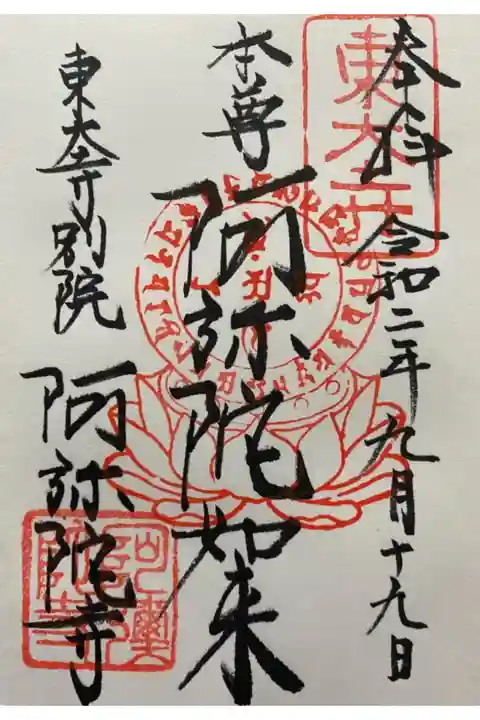 奉拝 令和二年九月十九日
本尊 阿弥陀如来
東大寺別院 阿弥陀寺